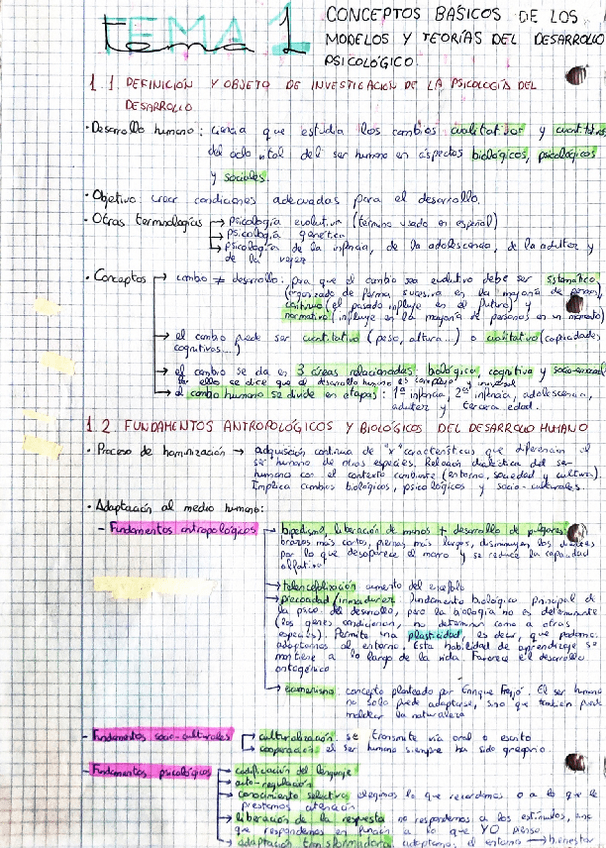 TEMA 1
CONCEPTOS BÁSICOS DE LOS
MODELOS Y TEORÍAS DEL DESARROLLO
PSICOLÓGICO.
1.1. DEFINICIÓN Y OBJETO DE INVESTIGACIÓN DE LA PSICOLOGÍA DEL
DESARROLLO
· Desarrollo humano: ciencia que estudia los cambios cualitativos y cuantitativos
del ciclo vital del ser humano en aspectos biológicos, psicológicos
y sociales.
· Objetivo: crear condiciones adecuadas para el desarrollo.
· Otras terminologías → psicología evolutiva (término usado en español)
→ psicología genética
→ psicología de la infancia, de la adolescencia, de la adultez y
de la vejez
· Conceptos → cambio ≠ desarrollo: para que el cambio sea evolutivo debe ser sistemático
(organizado de forma sucesiva en la mayoría de personas),
continuo (el pasado influye en el futuro) y
normativo (influye en la mayoría de personas en un momento)
→ el cambio puede ser cuantitativo (peso, altura...) o cualitativo (capacidades
cognitivos...)
→ el cambio se da en 3 áreas relacionadas: biológica, cognitiva y socio-emocional
por ello se dice que el desarrollo humano es complejo y universal
→ el cambio humano se divide en etapas: 1ª infancia, 2ª infancia, adolescencia,
adultez y tercera edad.
1.2. FUNDAMENTOS ANTROPOLÓGICOS Y BIOLÓGICOS DEL DESARROLLO HUMANO
· Proceso de hominización → adquisición continua de "x" características que diferencian al
ser humano de otras especies. Relación dialéctica del ser
humano con el contexto cambiante (entorno, sociedad y cultura).
Implica cambios biológicos, psicológicos y socio-culturales.
· Adaptación al medio humano:
- Fundamentos antropológicos → bipedismo, liberación de manos + desarrollo de pulgares
brazos más cortos, piernas más largas, disminuyen los
por lo que desaparece el morro y se reduce la capacidad
olfativa
→ telencefalización aumento del encéfalo
→ precocidad/inmadurez fundamento biológico principal de
la psico. del desarrollo, pero la biología no es determinante
(los genes condicionan, no determinan como a otras
especies). Permite una plasticidad, es decir, que podamos
adaptarnos al entorno. Esta habilidad de aprendizaje se
mantiene a lo largo de la vida. Favorece el desarrollo
ontogénico
→ concepto planteado por Enrique El ser humano
no solo puede adaptarse, sino que también puede
moldear la naturaleza
- Fundamentos socio-culturales → culturalización se transmite vía oral o escrita
→ cooperación el ser humano siempre ha sido gregario.
- Fundamentos psicológicos → codificación del lenguaje
→ auto-regulación
→ conocimiento selectivo elegimos lo que recordamos o a lo que le
prestamos atención
→ liberación de la respuesta no respondemos a los estímulos, sino
que respondemos en función a lo que YO pienso.
→ adaptación transformadora adaptamos el entorno → bienestar